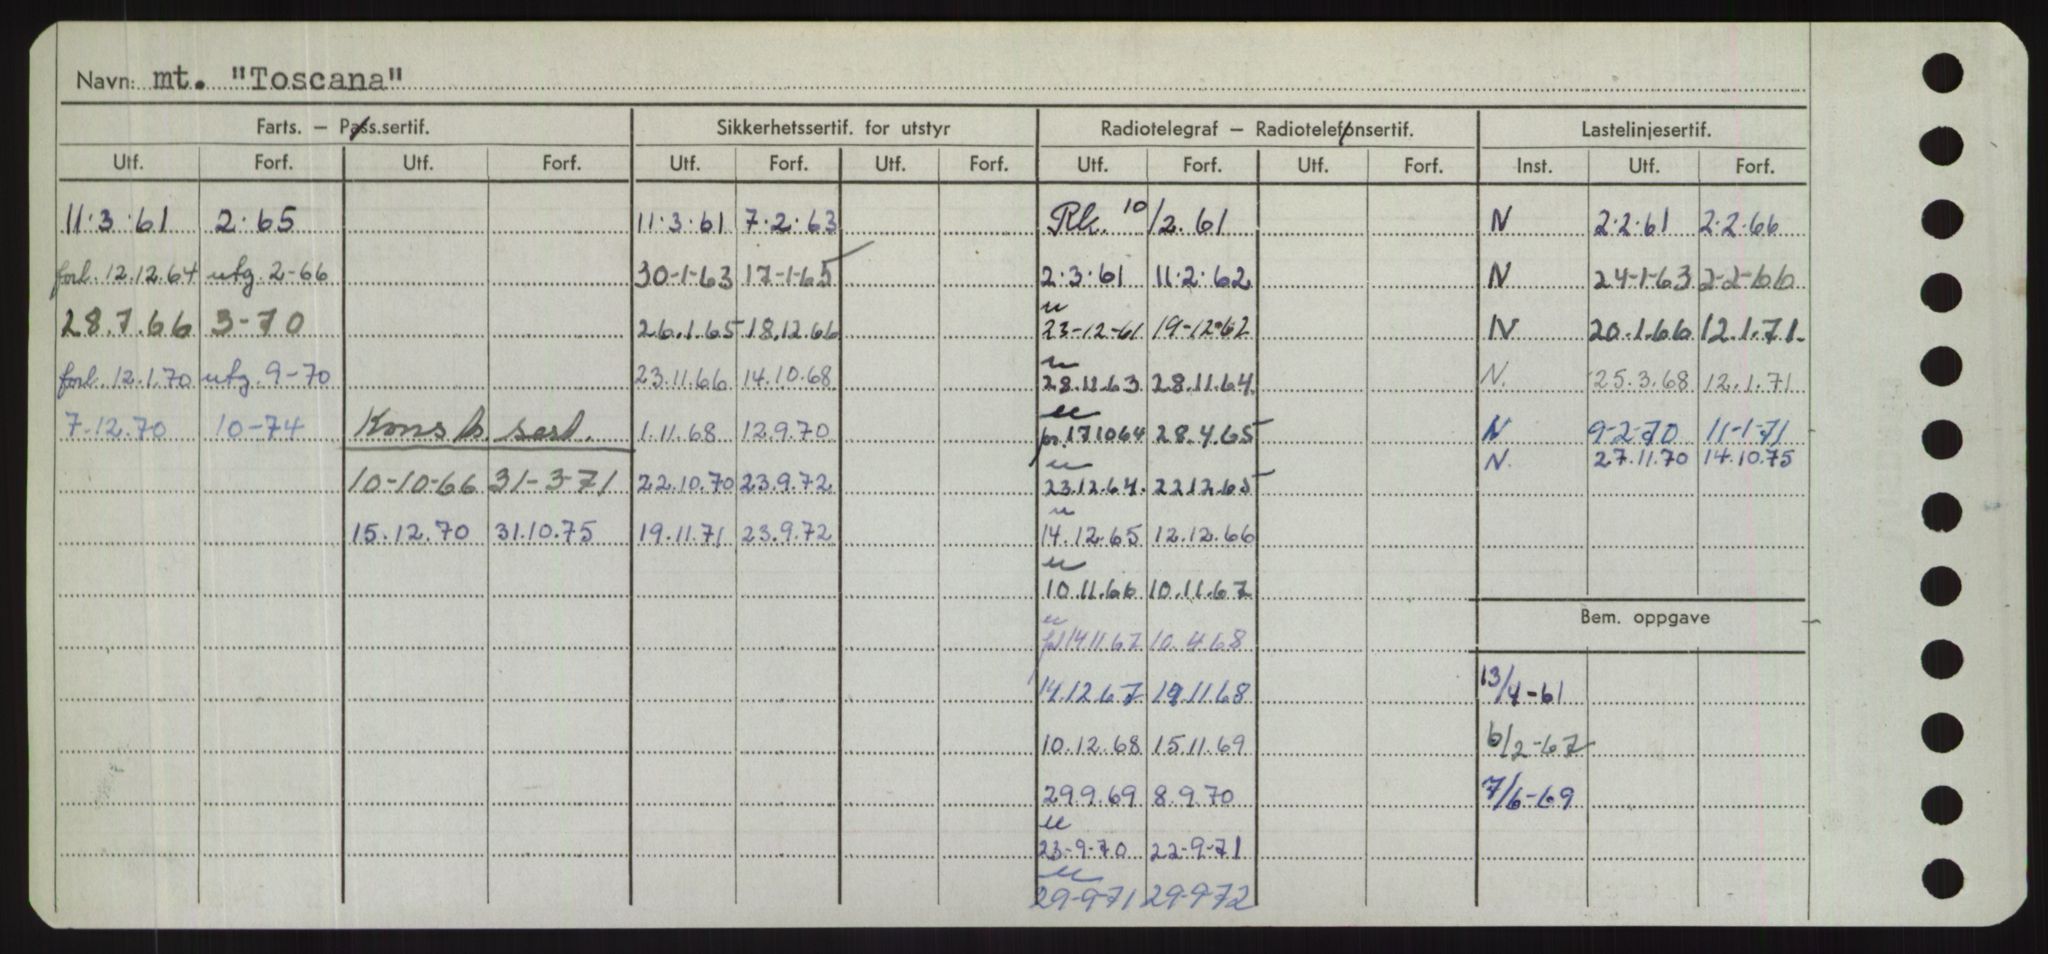 Navn: mt. "Toscana"
Farts. – Pass.sertif. Sikkerhetssertif. for utstyr Radiotelegraf – Radiotelefonsertif. Lastelinjesertif.
Utf. Forf. Utf. Forf. Utf. Forf. Utf. Forf. Utf. Forf. Utf. Forf. Inst. Utf. Forf.
11.3.61 2.65 11.3.61 7.2.63 Rk. 10/2.61 N 2.2.61 2.2.66
forl. 12.12.64 utg. 2-66 30-1-63 17-1-65 2.3.61 11.2.62 N 24-1-63 2-2-66
28.7.66 3-70 26.1.65 18.12.66 u 23-12-61 19-12-62 N 20.1.66 12.1.71.
forl. 12.1.70 utg. 9-70 23.11.66 14.10.68 u 28.11.63 28.11.64. N. 25.3.68 12.1.71
7.12.70 10-74 Konstr. sert. 1.11.68 12.9.70 u 17.10.64 28.4.65 N 9-2-70 11-1-71
N. 27.11.70 14.10.75
10-10-66 31-3-71 22.10.70 23.9.72 u 23.12.64. 22.12.65
15.12.70 31.10.75 19.11.71 23.9.72 u 14.12.65 12.12.66
u 10.11.66 10.11.67
Bem. oppgave
u 14.11.67 10.4.68
14.12.67 19.11.68 13/4-61
10.12.68 15.11.69 6/2-67
29.9.69 8.9.70 7/6-69
u 23-9-70 22-9-71
u 29-9-71 29-9-72